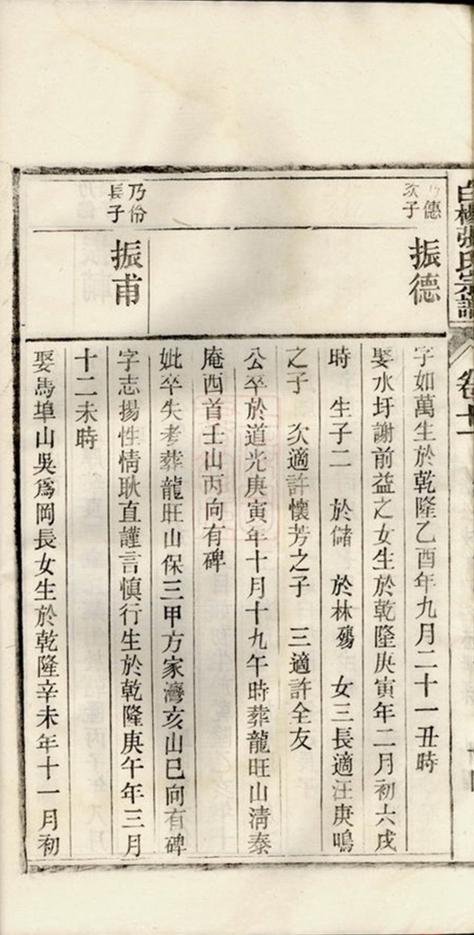 白楊張氏宗譜
卷十一
德
次子
振德
字如萬生於乾隆乙酉年九月二十一丑時
娶水圩謝前益之女生於乾隆庚寅年二月初六戌
時　生子二　於儲　於林殤　女三長適汪庚鳴
之子　次適許懷芳之子　三適許全友
公卒於道光庚寅年十月十九午時葬龍旺山清泰
庵西首壬山丙向有碑
妣卒失考葬龍旺山保三甲方家灣亥山巳向有碑
乃份
長子
振甫
字志揚性情耿直謹言慎行生於乾隆庚午年三月
十二未時
娶馬埠山吳爲岡長女生於乾隆辛未年十一月初